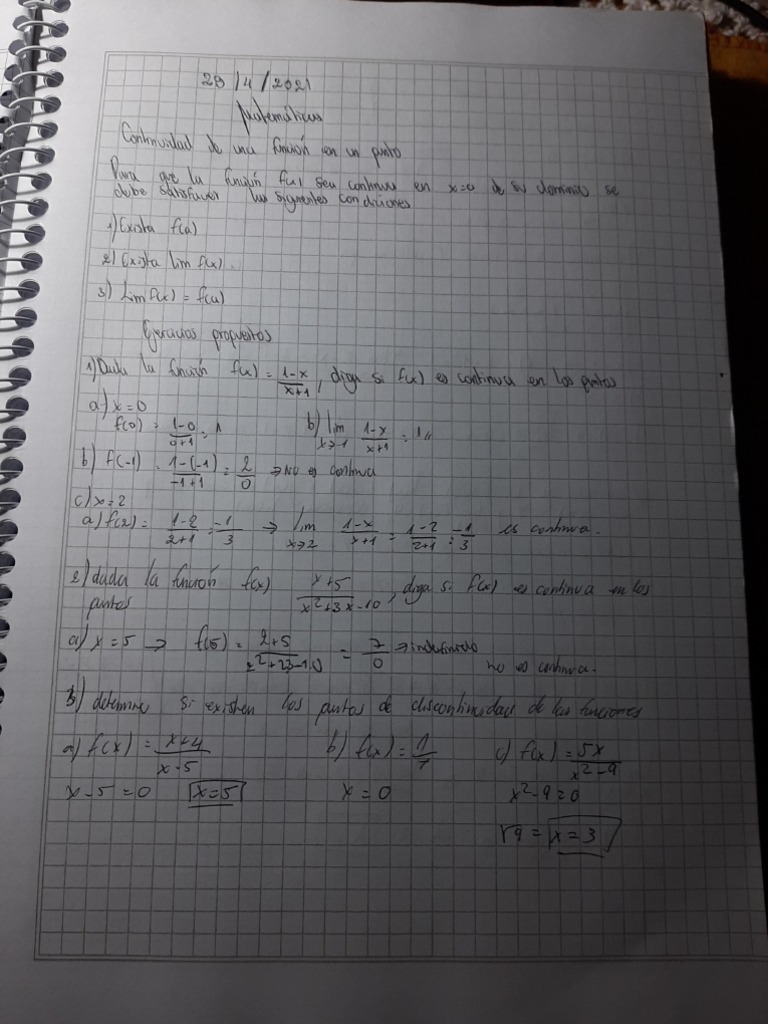 29/4/2021
Matemáticas
Continuidad de una función en un punto
Para que la función f(x) sea continua en x=a de su dominio se
debe satisfacer las siguientes condiciones
1) Exista f(a)
2) Exista lim f(x).
3) Lim f(x) = f(a)
Ejercicios propuestos
1) Dada la función f(x) = 1-x/x+1, diga si f(x) es continua en los puntos
a) x=0
f(0) = 1-0/0+1 = 1 b) lim x→1 1-x/x+1 = 1
b) f(-1) = 1-(-1)/-1+1 = 2/0 → No es continua
c) x=2
a) f(2) = 1-2/2+1 = -1/3 → lim x→2 1-x/x+1 = 1-2/2+1 = -1/3 es continua.
2) dada la función f(x) x+5/x²+3x-10, diga si f(x) es continua en los
puntos
a) x=5 → f(5) = 2+5/2²+23-10 = 7/0 → indefinido
no es continua.
3) determine si existen los puntos de discontinuidad de las funciones
a) f(x) = x+4/x-5 b) f(x) = 1/7 c) f(x) = 5x/x²-9
x-5=0 x=5 x=0 x²-9=0
√9 = x=3